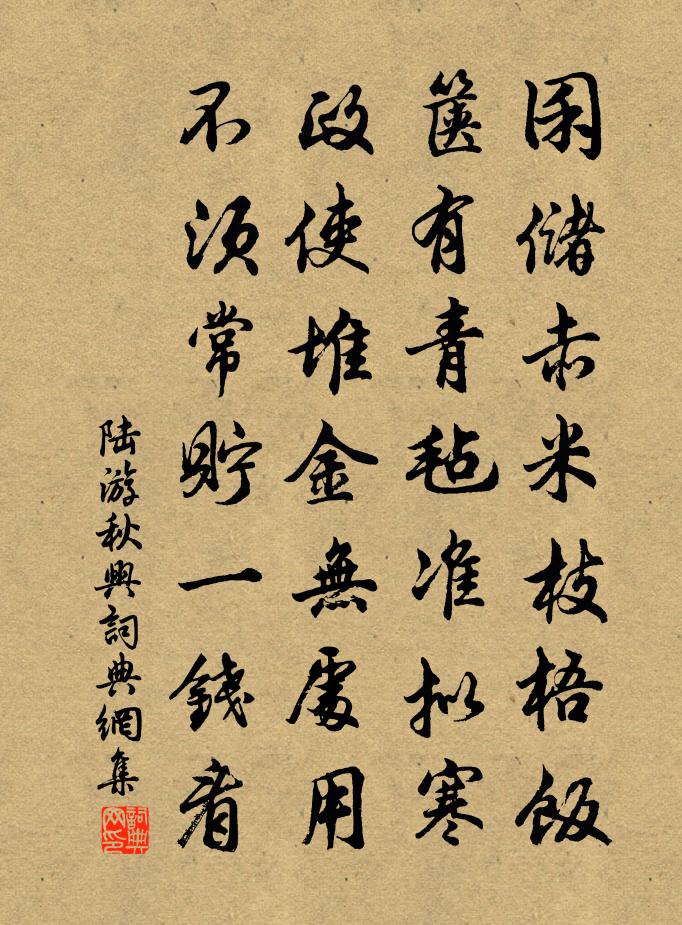 囷儲赤米枝梧飯
篋有青毡准擬寒
政使堆金無處用
不須常貯一錢看
陆游秋興詞典網集
詞典网印